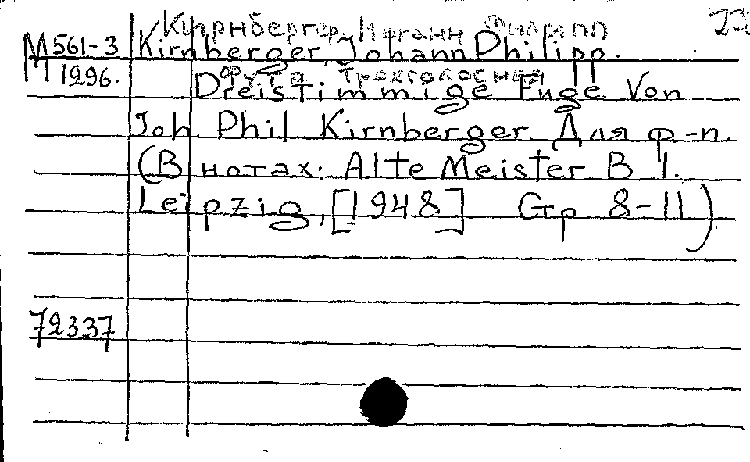 Кирнбергер, Иоганн Филипп
М 561-3 Kirnberger, Johann Philipp.
М 1296. Фуга трехголосная
Dreistimmige Fuge von
Joh Phil Kirnberger Для ф-п.
(В нотах: Alte Meister B 1.
Leipzig, [1948] Стр 8-11)
72337